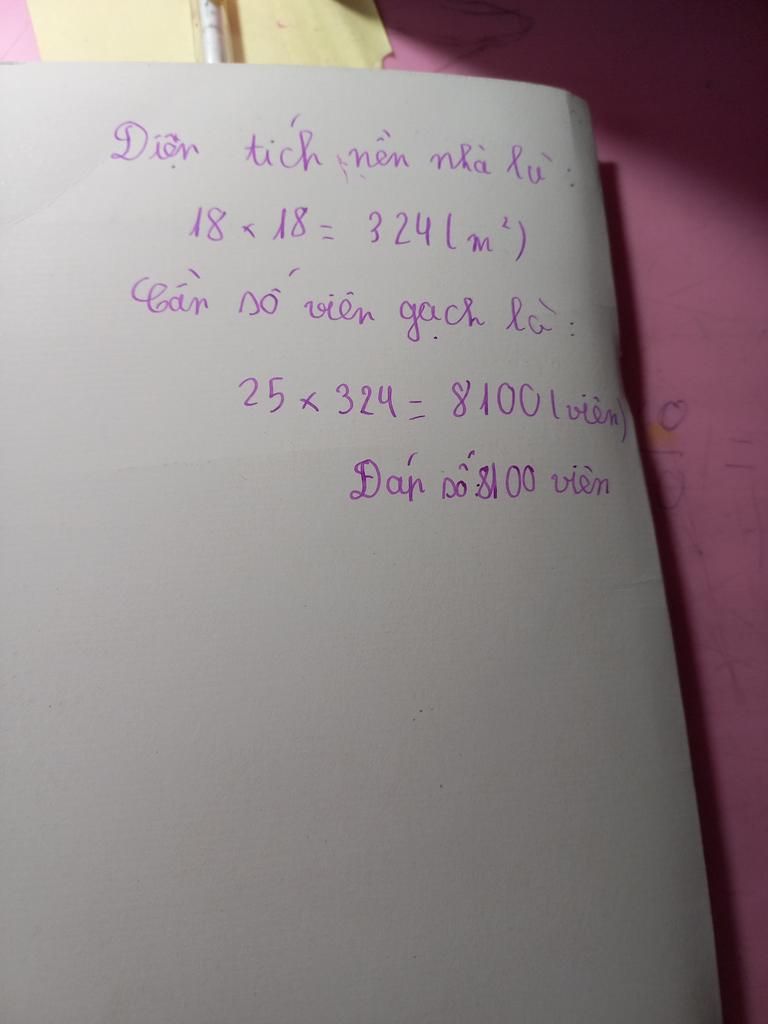 Diện tích nền nhà là:
18 × 18 = 324 (m²)
Cần số viên gạch là:
25 × 324 = 8100 (viên)
Đáp số: 8100 viên